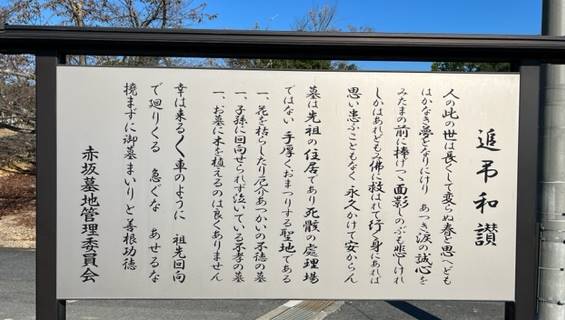 追弔和讃
人の此の世は長くして変らぬ春と思へども
はかなき夢となりにけり あつき涙の誠心を
みたまの前に捧げつつ面影しのぶも悲しけれ
しかはあれどもみ佛に救はれて行く身にあれば
思い患ふこともなく永久かけて安からん
墓は先祖の住居であり死骸の處理場
ではない 手厚くおまつりする聖地である
一、花を枯らしたり厄介あつかいの不徳の墓
一、子孫に回向せられず泣いている不孝の墓
一、お墓に木を植えるのは良くありません
幸は来るくるく車のように 祖先回向
で廻りくる 急ぐな あせるな
撓まずに御墓まいりと善根功徳
赤坂墓地管理委員会